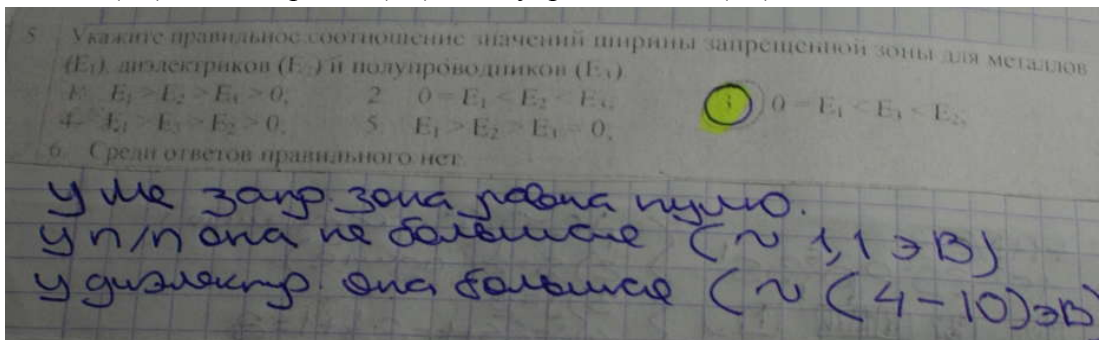 5. Укажите правильное соотношение значений ширины запрещенной зоны для металлов
(E₁), диэлектриков (E₂) и полупроводников (E₃).
1. E₁ > E₂ > E₃ > 0; 2. 0 = E₁ < E₂ < E₃; 3. 0 = E₁ < E₃ < E₂;
4. E₁ > E₃ > E₂ > 0; 5. E₁ > E₂ > E₃ = 0;
6. Среди ответов правильного нет.
у Ме запр. зона равна нулю.
у п/п она не большая (~ 1,1 эВ)
у диэлектр. она большая (~ (4-10) эВ)